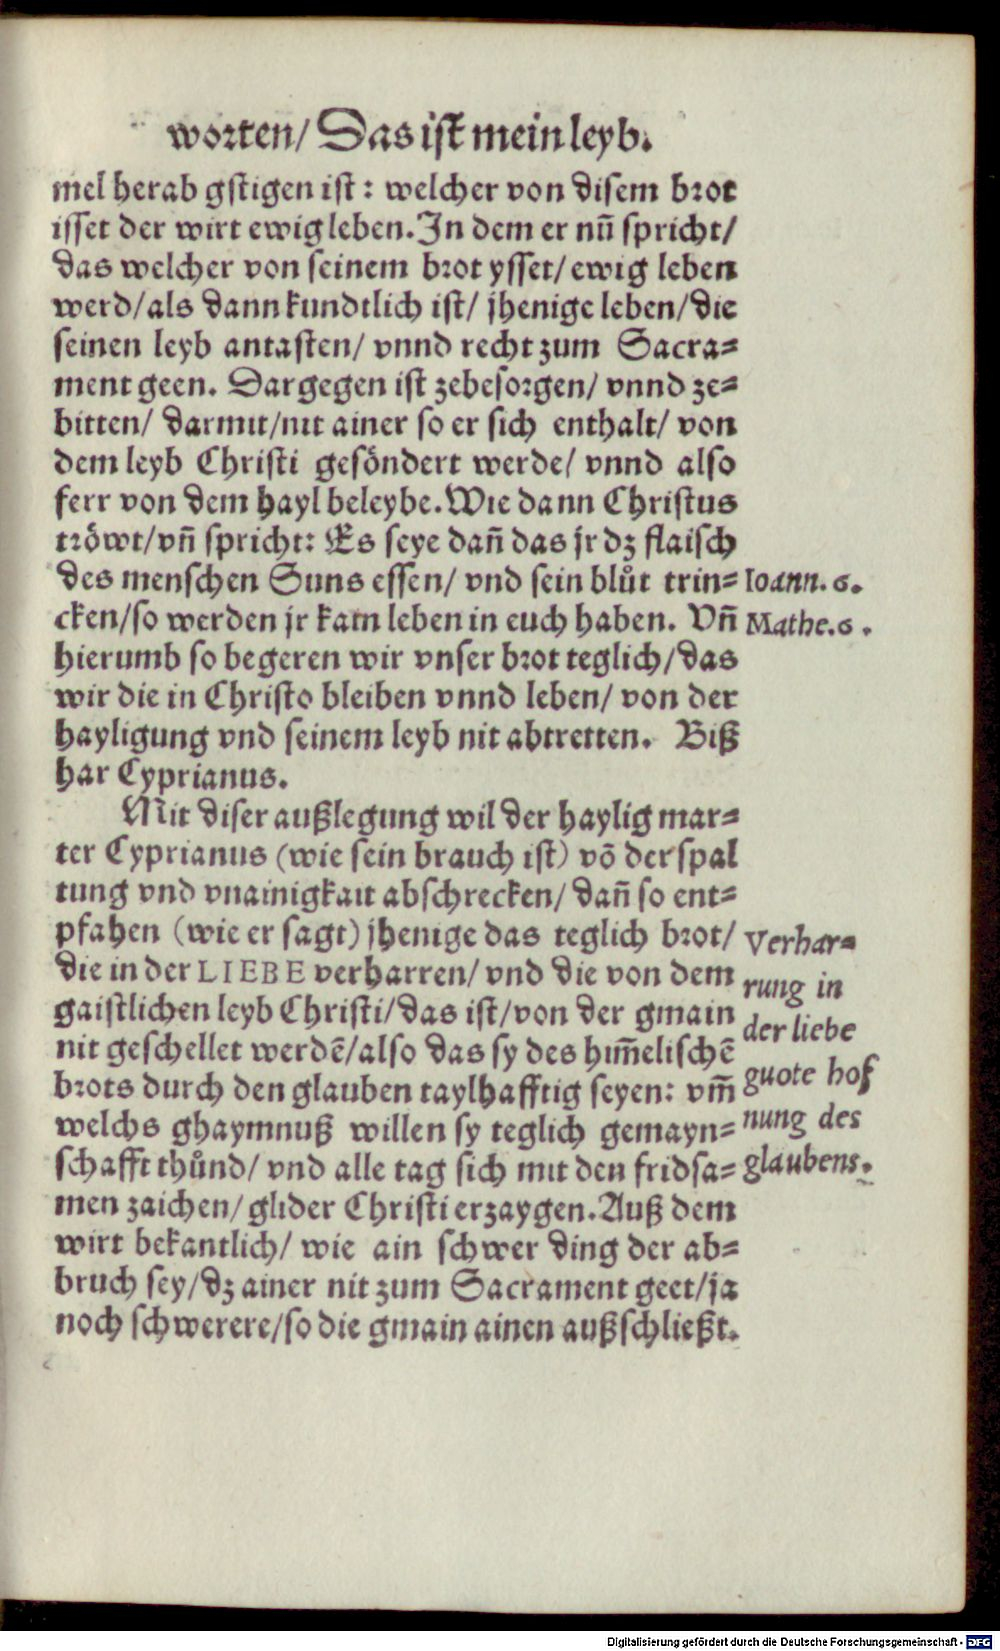 worten/ Das ist mein leyb.
mel herab gstigen ist: welcher von disem brot
isset der wirt ewig leben. In dem er nũ spricht/
das welcher von seinem brot ysset/ ewig leben
werd/als dann kundtlich ist/ jhenige leben/die
seinen leyb antasten/ vnnd recht zum Sacra⸗
ment geen. Dargegen ist zebesorgen/ vnnd ze⸗
bitten/ darmit/nit ainer so er sich enthalt/ von
dem leyb Christi gesöndert werde/ vnnd also
ferr von dem hayl beleybe. Wie dann Christus
tröwt/vñ spricht: Es seye dañ das jr dz flaisch
des menschen Suns essen/ vnd sein blůt trin⸗
Ioann. 6.
cken/so werden jr kain leben in euch haben. Vñ
Mathe. 6.
hierumb so begeren wir vnser brot teglich/das
wir die in Christo bleiben vnnd leben/ von der
hayligung vnd seinem leyb nit abtretten. Biß
har Cyprianus.
Mit diser außlegung wil der haylig mar⸗
ter Cyprianus (wie sein brauch ist) võ der spal
tung vnd vnainigkait abschrecken/ dañ so ent⸗
pfahen (wie er sagt) jhenige das teglich brot/
die in der LIEBE verharren/ vnd die von dem
gaistlichen leyb Christi/das ist/von der gmain
nit geschellet werdẽ/also das sy des him̃elischẽ
brots durch den glauben taylhafftig seyen: vm̃
welchs ghaymnuß willen sy teglich gemayn⸗
schafft thůnd/ vnd alle tag sich mit den fridsa⸗
men zaichen/ glider Christi erzaygen. Auß dem
wirt bekantlich/ wie ain schwer ding der ab⸗
bruch sey/dz ainer nit zum Sacrament geet/ja
noch schwerere/so die gmain ainen außschließt.
Verhar⸗
rung in
der liebe
guote hof
nung des
glaubens.
Digitalisierung gefördert durch die Deutsche Forschungsgemeinschaft - DFG